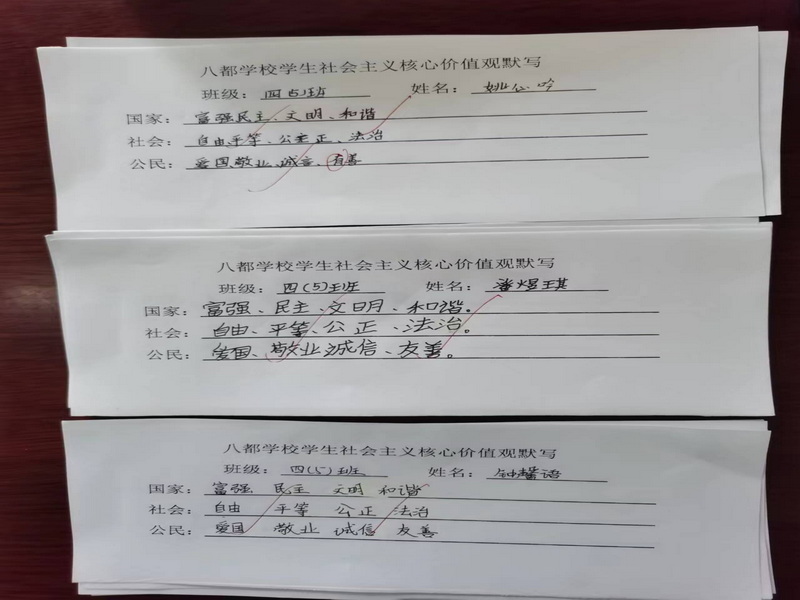 八都学校学生社会主义核心价值观默写
班级：四(5)班 姓名：姚仏吟
国家：富强民主、文明、和谐
社会：自由平等、公主正、法治
公民：爱国敬业、诚言、有善
八都学校学生社会主义核心价值观默写
班级：四(5)班 姓名：潘煜琪
国家：富强、民主、文明、和谐。
社会：自由、平等、公正、法治。
公民：爱国、敬业诚信、友善。
八都学校学生社会主义核心价值观默写
班级：四(5)班 姓名：钟馨语
国家：富强 民主 文明 和谐
社会：自由 平等 公正 法治
公民：爱国 敬业 诚信 友善